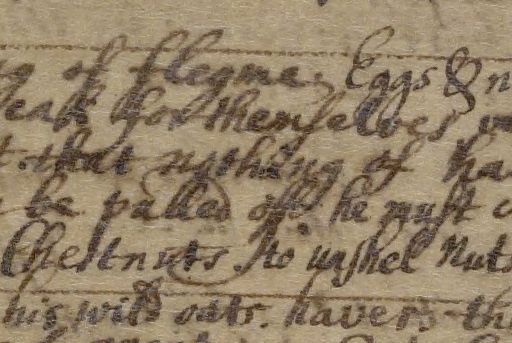 of flegme, Eggs & n
for themselves
that nothing of ha
be pulled off he must
Chestnuts. to unshel Nuts
his wild oats. havers th